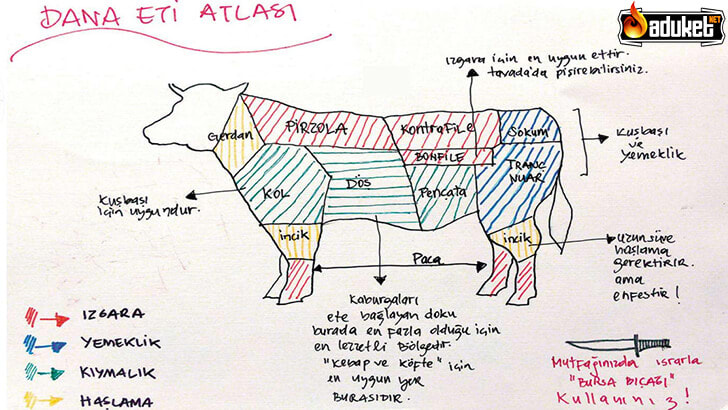 DANA ETİ ATLASI
aduket.NET
Izgara için en uygun ettir.
tavada'da pişirebilirsiniz.
Gerdan
PİRZOLA
KONTRAFİLE
SOKUM
BONFİLE
TRANÇ
NUAR
KOL
DÖŞ
Pençata
Kuşbaşı
ve
yemeklik
Kuşbaşı
için uygundur.
incik
incik
Paça
uzun süre
haşlama
gerektirir.
ama
enfestir!
Kaburgaları
ete bağlayan doku
burada en fazla olduğu için
en lezzetli bölgedir.
"Kebap ve Köfte" için
en uygun yer
BURASIDIR.
IZGARA
YEMEKLİK
KIYMALIK
HAŞLAMA
Mutfağınızda ısrarla
"BURSA BIÇAĞI"
Kullanınız!